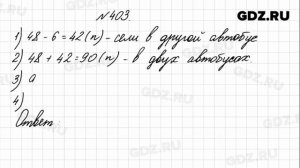 GDZ.RU
№403.
1) 48 - 6 = 42 (п) - сели в другой автобус
2) 48 + 42 = 90 (п) - в двух автобусах
3) а
4)
Ответ:
GDZ.RU